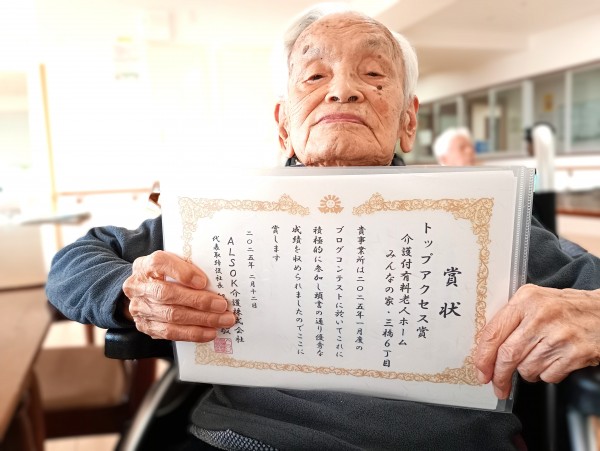 賞状
トップアクセス賞
介護付有料老人ホーム
みんなの家・三橋6丁目
貴事業所は二〇二五年一月度の
ブログコンテストに於いてこれに
積極的に参加し頭書の通り優秀な
成績を収められましたのでここに
賞します
二〇二五年二月十二日
ALSOK介護株式会社
代表取締役社長